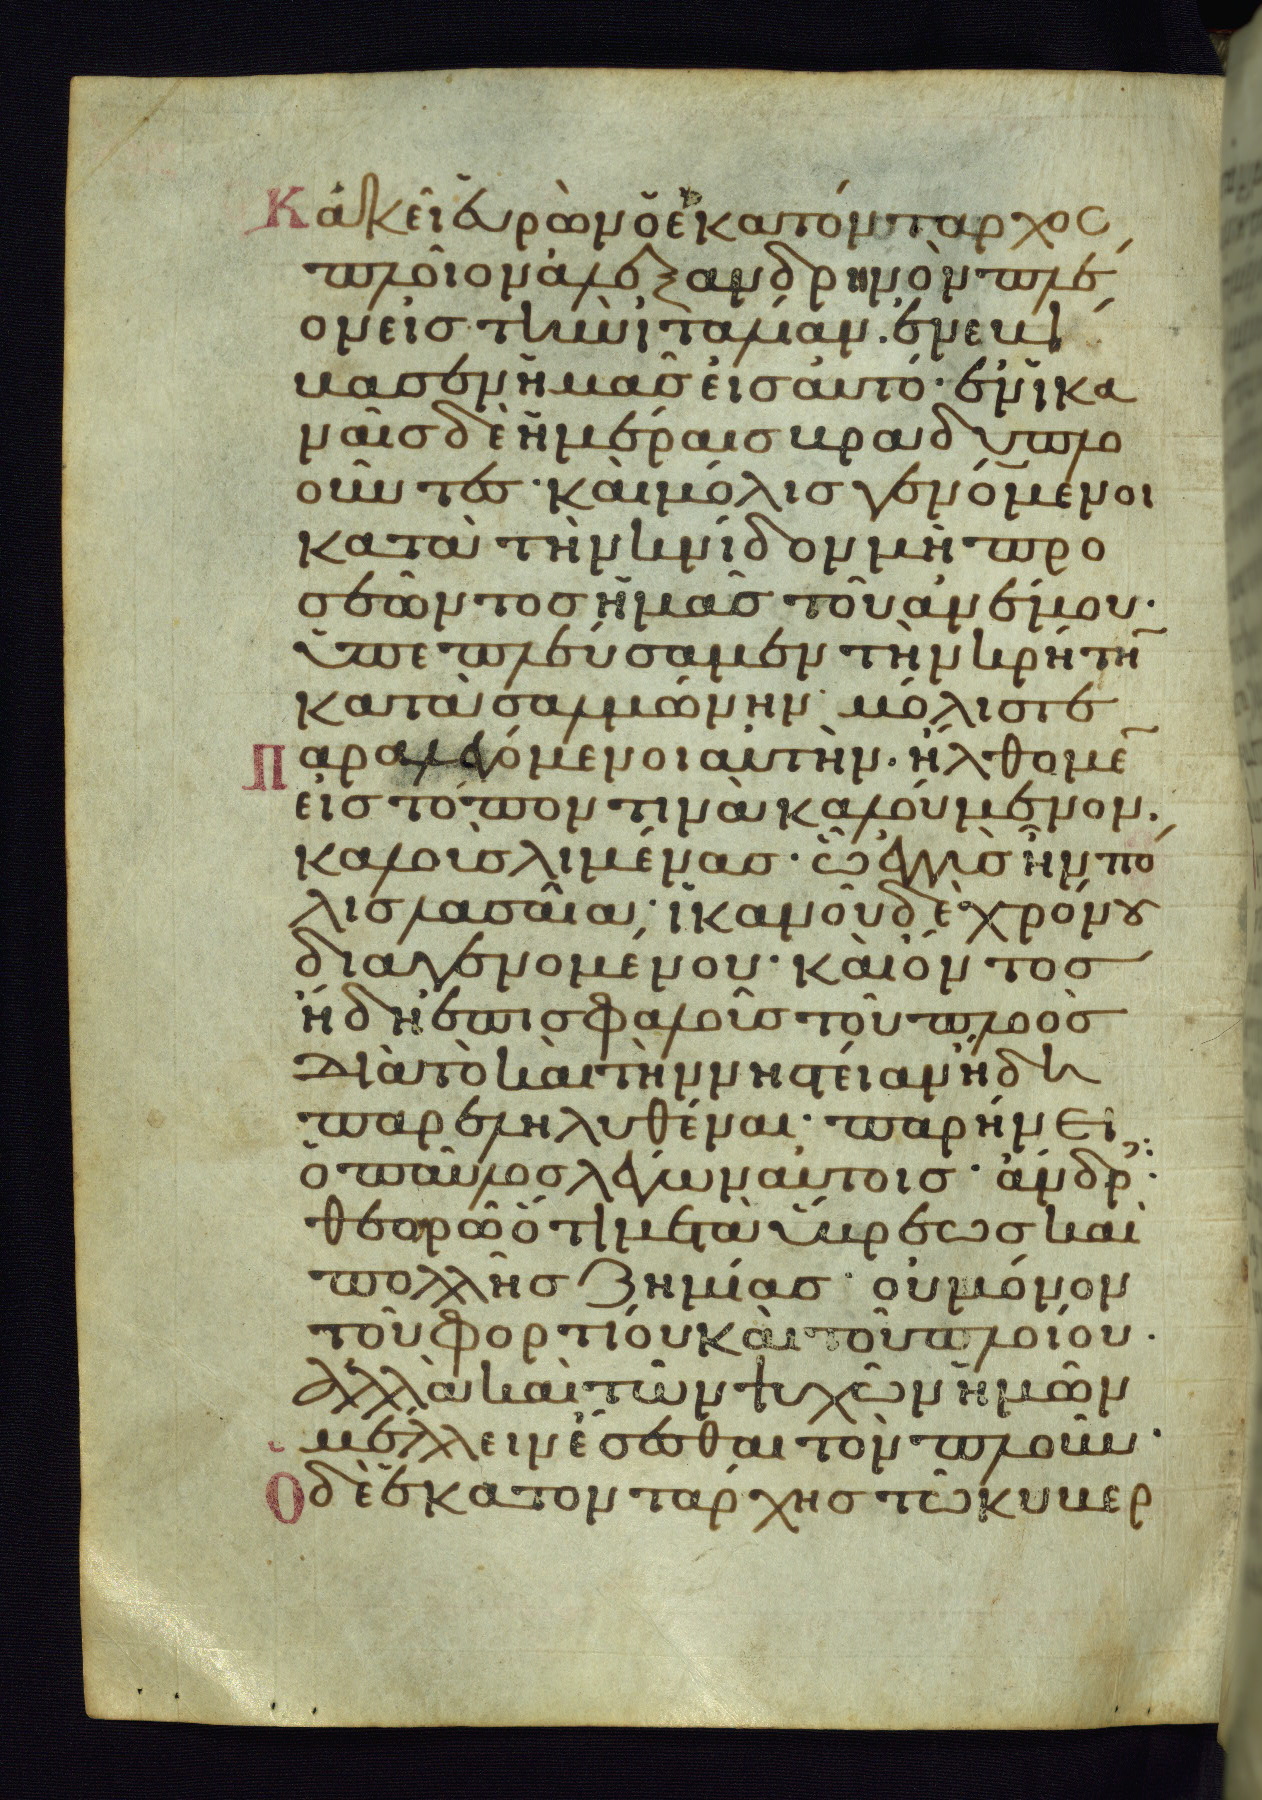 Κἀκεῖ εὑρὼν ὁ ἑκατόνταρχος
πλοῖον ἀλεξανδρηνὸν πλέ
ον εἰς τὴν ἰταλίαν. ἐνεβί
βασεν ἡμᾶς εἰς αὐτό· ἐν ἱκα
ναῖς δὲ ἡμέραις βραδυπλο
οῦντες· καὶ μόλις γενόμενοι
κατὰ τὴν κνίδον μὴ προ
σεῶντος ἡμᾶς τοῦ ἀνέμου·
ὑπεπλεύσαμεν τὴν κρήτη̅
κατὰ σαλμώνην· μόλις τε
Παραλεγόμενοι αὐτὴν· ἤλθομε̅
εἰς τόπον τινὰ καλούμενον.
καλοὺς λιμένας· ὧ ἐγγὺς ἦν πό
λις λασαία· ἱκανοῦ δὲ χρόνου
διαγενομένου· καὶ ὄντος
ἤδη ἐπισφαλοῦς τοῦ πλοὸς
διὰ τὸ καὶ τὴν νηστείαν ἤδη
παρεληλυθέναι· παρήνει
ὁ παῦλος λέγων αὐτοις· ἄνδρ
θεορῶ ὅτι μετὰ ὕβρεως καὶ
πολλῆς ζημίας· οὐ μόνον
τοῦ φορτίου καὶ τοῦ πλοίου·
ἀλλὰ καὶ τῶν ψυχῶν ἡμῶν
μέλλειν ἔσεσθαι τὸν πλοῦν·
Ὁ δὲ ἑκατοντάρχης τῶ κυβερ